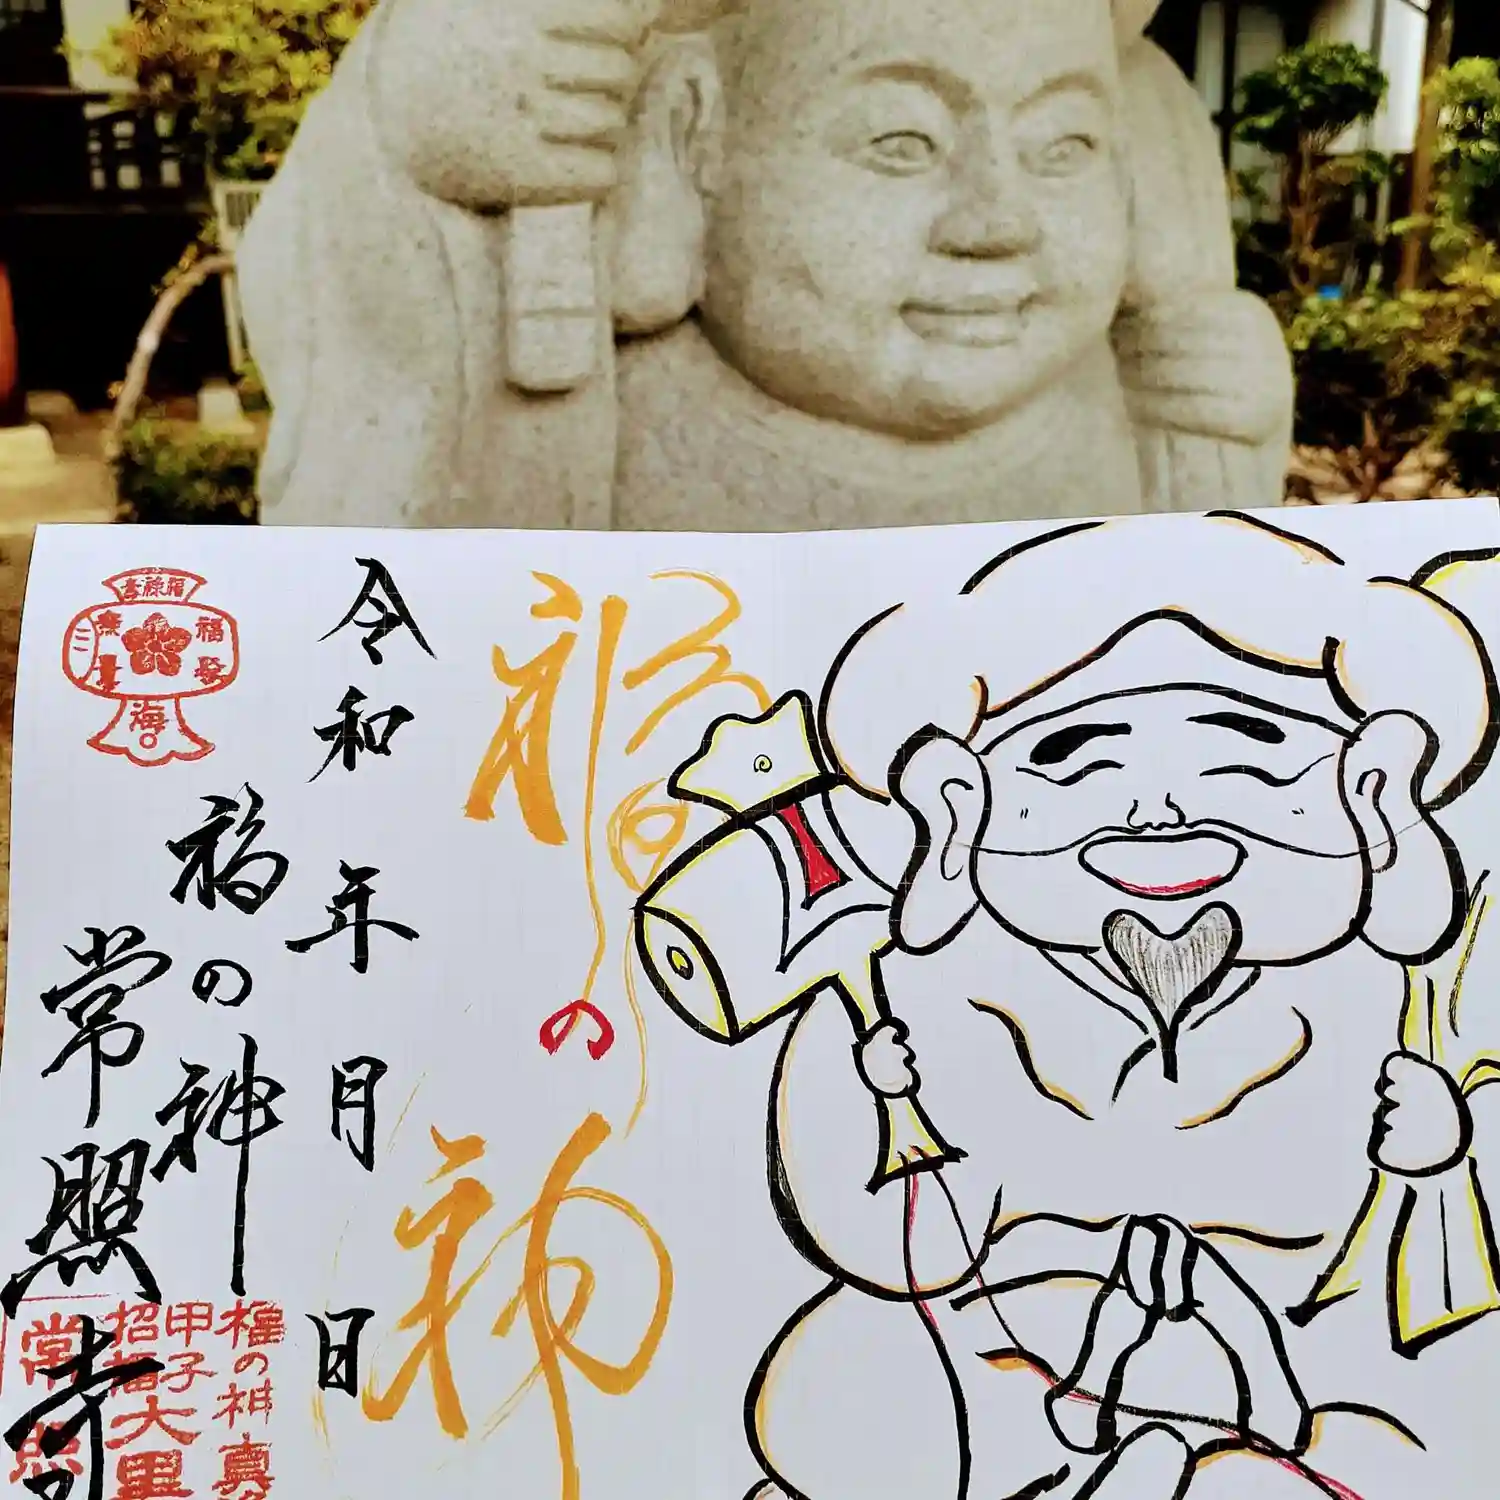 福の神
令和　年　月　日
福の神
常照寺
福禄寿
福
海
福の神
甲子
招福大黒
常照